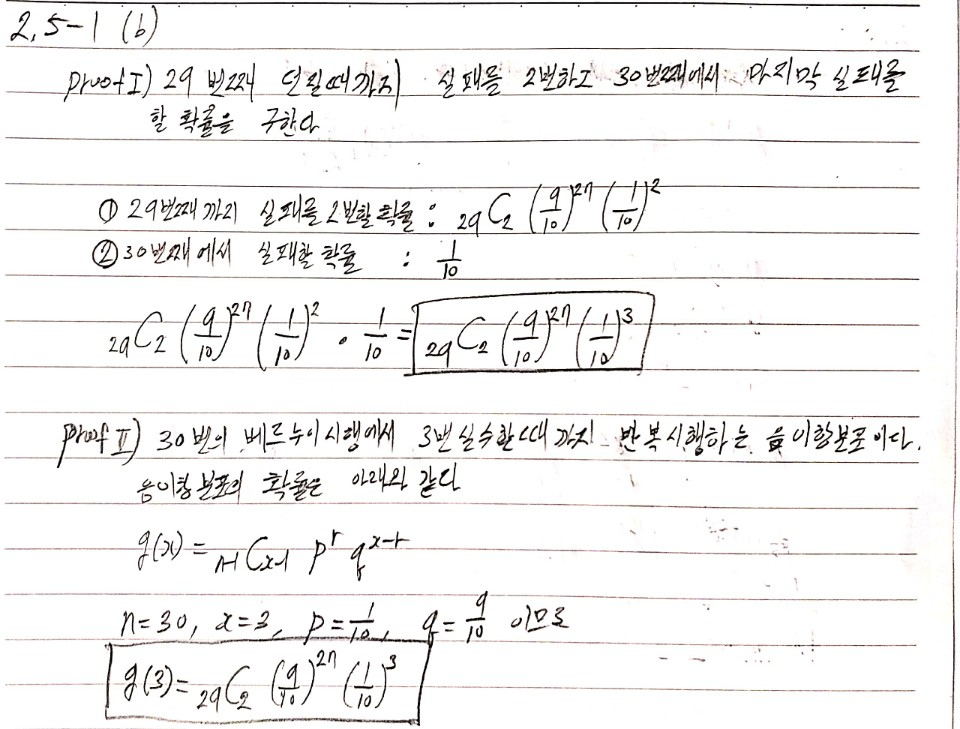 2,5-1 (b)
proof I) 29 번째 던질때까지 실패를 2번하고 30번째에서 마지막 실패를
할 확률을 구한다
① 29번째 까지 실패를 2번할 확률 : ₂₉C₂ (9/10)²⁷ (1/10)²
② 30번째 에서 실패할 확률 : 1/10
₂₉C₂ (9/10)²⁷ (1/10)² · 1/10 = ₂₉C₂ (9/10)²⁷ (1/10)³
proof II) 30번의 베르누이시행에서 3번 실수할 때 까지 반복시행하는 음이항분포이다.
음이항 분포의 확률은 아래와 같다
g(x) = ₙ₋₁Cₓ₋₁ pʳ qˣ⁻ʳ
n=30, x=3, p=1/10, q=9/10 이므로
g(3) = ₂₉C₂ (9/10)²⁷ (1/10)³